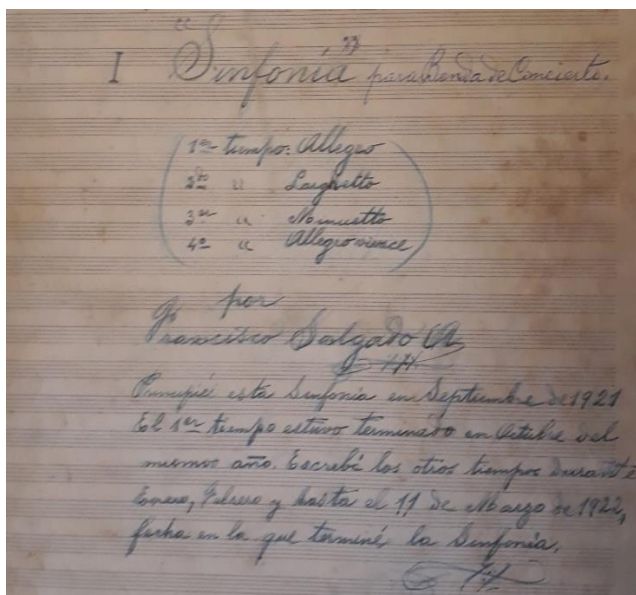 I "Sinfonía" para Banda de Concierto.
1er tiempo: Allegro
2do " Larghetto
3er " Menuetto
4º " Allegro vivace
por
Francisco Salgado A.
Principié esta Sinfonía en Septiembre de 1921
El 1er tiempo estuvo terminado en Octubre del
mismo año. Escribí los otros tiempos durante
Enero, Febrero y hasta el 11 de Marzo de 1922,
fecha en la que terminé la Sinfonía.